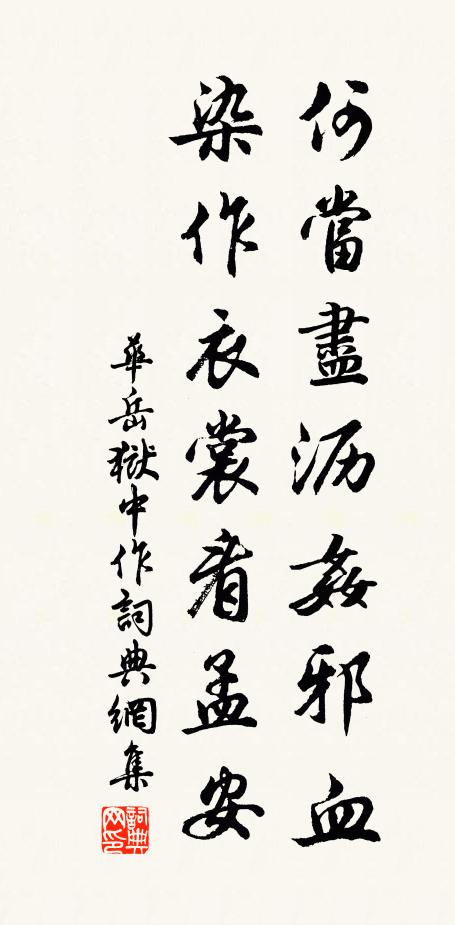 何當盡沥姦邪血
染作衣裳看孟安
華岳獄中作詞典網集
詞典網印